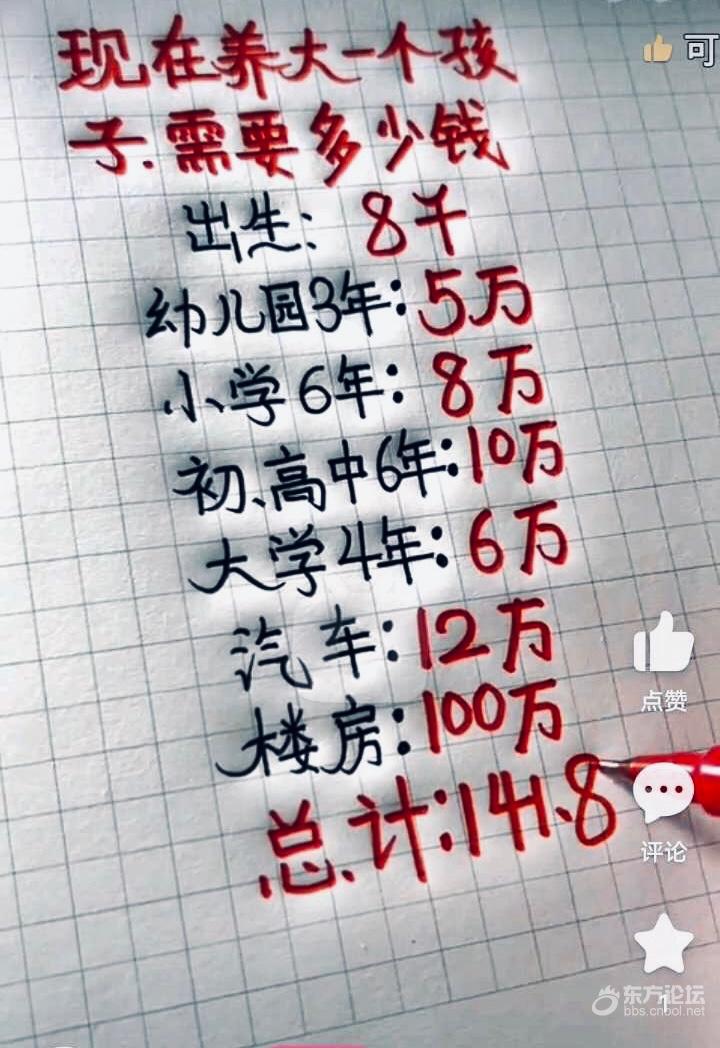 现在养大一个孩
子.需要多少钱
出生: 8千
幼儿园3年:5万
小学6年: 8万
初、高中6年:10万
大学4年: 6万
汽车:12万
楼房:100万
总计:141.8
可
点赞
评论
1
东方论坛
bbs.cnool.net